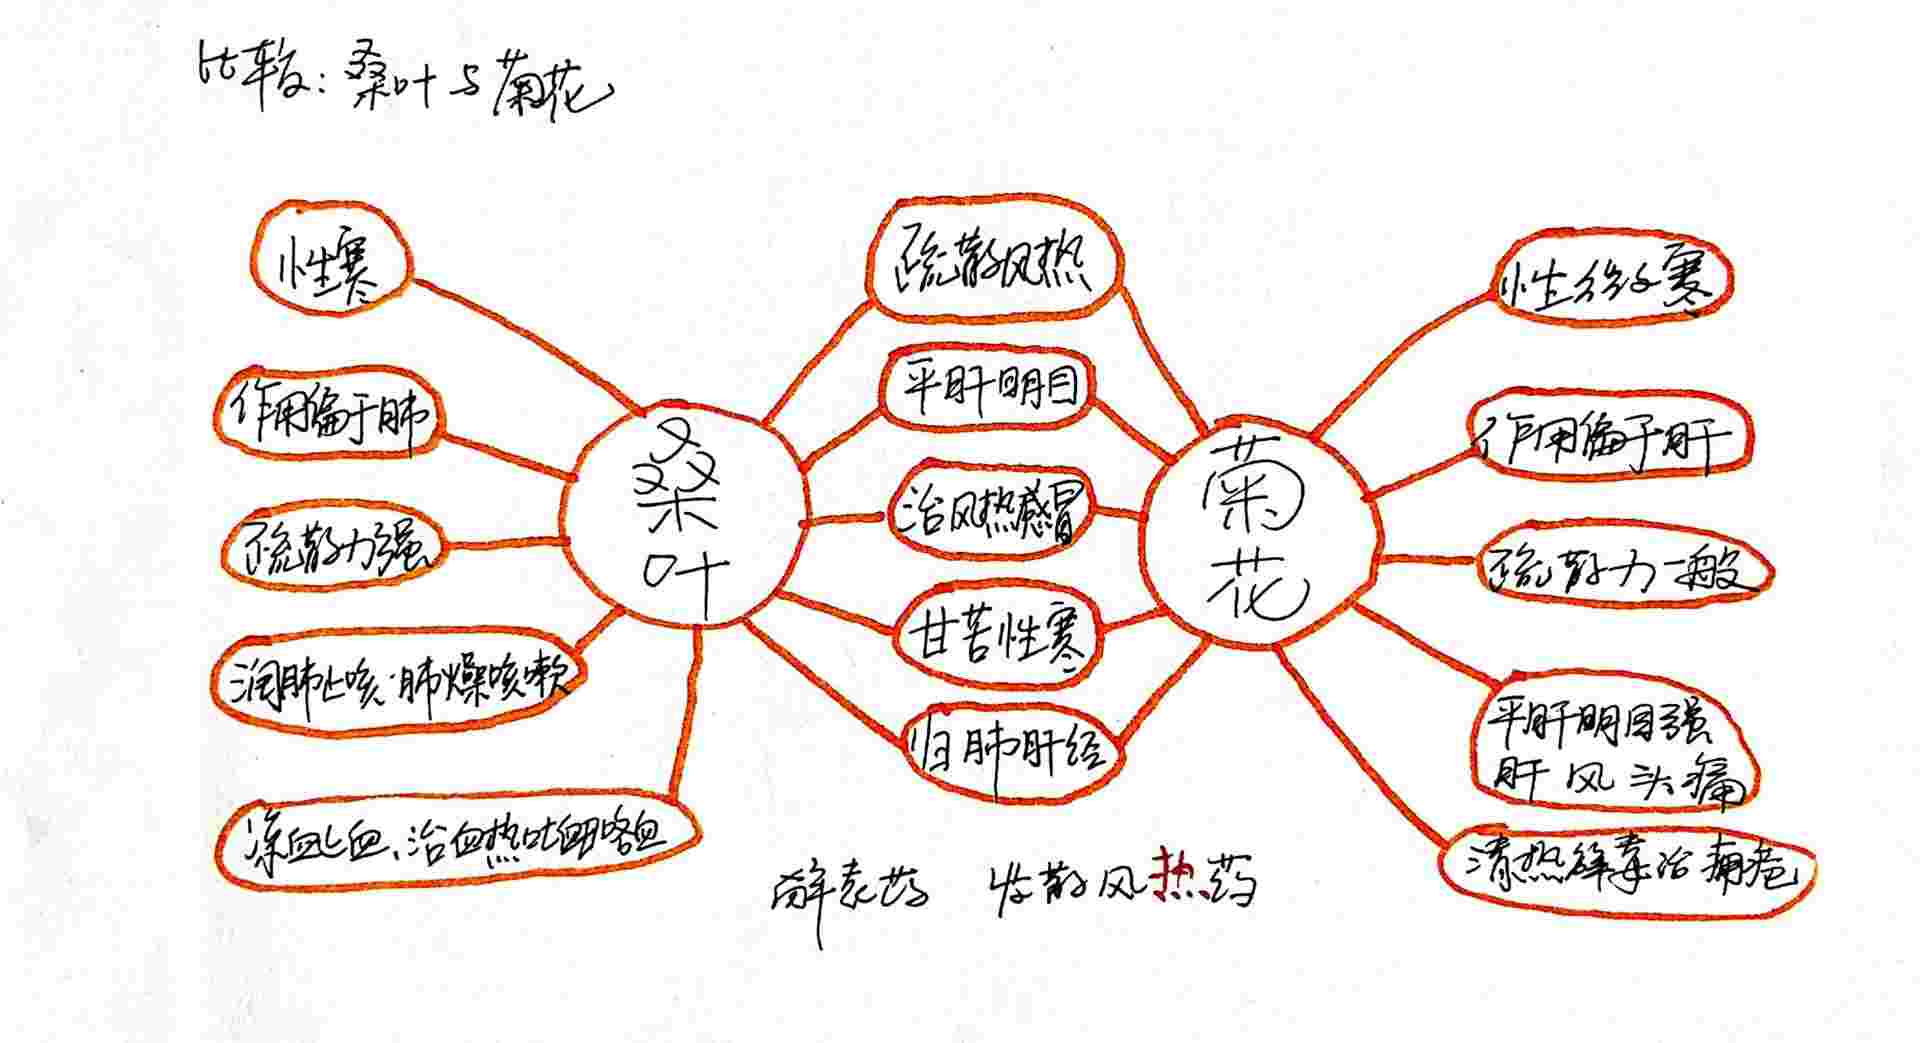 比较:桑叶与菊花
性寒
作用偏于肺
疏散力强
润肺止咳·肺燥咳嗽
凉血止血、治血热吐血咯血
桑叶
疏散风热
平肝明目
治风热感冒
甘苦性寒
归肺肝经
菊花
性微寒
作用偏于肝
疏散力一般
平肝明目强
肝风头痛
清热解毒治痈疮
解表药 发散风热药